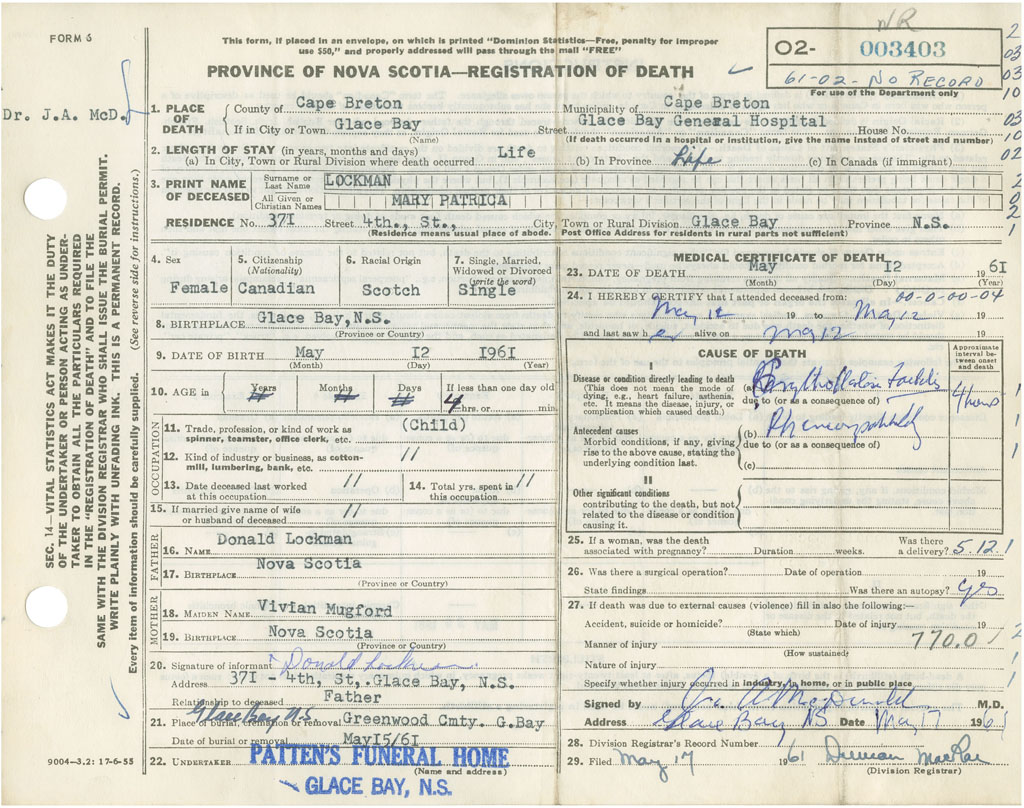 FORM 6
This form, if placed in an envelope, on which is printed "Dominion Statistics—Free, penalty for improper
use $50," and properly addressed will pass through the mail "FREE"
PROVINCE OF NOVA SCOTIA—REGISTRATION OF DEATH
NR
02- 003403
61-02- NO RECORD
For use of the Department only
Dr. J.A. McD.
1. PLACE OF DEATH
County of Cape Breton Municipality of Cape Breton
If in City or Town Glace Bay Street Glace Bay General Hospital House No.
(Name) (If death occurred in a hospital or institution, give the name instead of street and number)
2. LENGTH OF STAY (in years, months and days)
(a) In City, Town or Rural Division where death occurred Life (b) In Province Life (c) In Canada (if immigrant)
3. PRINT NAME OF DECEASED
Surname or Last Name LOCKMAN
All Given or Christian Names MARY PATRICA
RESIDENCE No. 37I Street 4th., St., City, Town or Rural Division Glace Bay Province N.S.
(Residence means usual place of abode. Post Office Address for residents in rural parts not sufficient)
4. Sex Female
5. Citizenship (Nationality) Canadian
6. Racial Origin Scotch
7. Single, Married, Widowed or Divorced (write the word) Single
8. BIRTHPLACE Glace Bay, N.S.
(Province or Country)
9. DATE OF BIRTH May I2 I96I
(Month) (Day) (Year)
10. AGE in Years Months Days If less than one day old
4 hrs. or min.
OCCUPATION
11. Trade, profession, or kind of work as
spinner, teamster, office clerk, etc. (Child)
12. Kind of industry or business, as cotton-
mill, lumbering, bank, etc. //
13. Date deceased last worked
at this occupation //
14. Total yrs. spent in
this occupation //
15. If married give name of wife
or husband of deceased //
FATHER
16. NAME Donald Lockman
17. BIRTHPLACE Nova Scotia
(Province or Country)
MOTHER
18. MAIDEN NAME Vivian Mugford
19. BIRTHPLACE Nova Scotia
(Province or Country)
20. Signature of informant Donald Lockman
Address 37I - 4th, St, .Glace Bay, N.S.
Relationship to deceased Father
Glace Bay N.S.
21. Place of burial, cremation or removal Greenwood Cmty. G.Bay
Date of burial or removal MayI5/6I
22. UNDERTAKER PATTEN'S FUNERAL HOME
(Name and address)
GLACE BAY, N.S.
9004-3.2: 17-6-55
SEC. 14—VITAL STATISTICS ACT MAKES IT THE DUTY
OF THE UNDERTAKER OR PERSON ACTING AS UNDER-
TAKER TO OBTAIN ALL THE PARTICULARS REQUIRED
IN THE "REGISTRATION OF DEATH" AND TO FILE THE
SAME WITH THE DIVISION REGISTRAR WHO SHALL ISSUE THE BURIAL PERMIT.
WRITE PLAINLY WITH UNFADING INK. THIS IS A PERMANENT RECORD.
Every item of information should be carefully supplied. (See reverse side for instructions.)
MEDICAL CERTIFICATE OF DEATH
23. DATE OF DEATH May I2 196I
(Month) (Day) (Year)
24. I HEREBY CERTIFY that I attended deceased from: 00-0-00-04
May 12 19 to May 12 19
and last saw her alive on May 12 19
CAUSE OF DEATH
Approximate interval between onset and death
I
Disease or condition directly leading to death
(This does not mean the mode of
dying, e.g., heart failure, asthenia,
etc. It means the disease, injury, or
complication which caused death.)
(a) Erythroblastosis Foetalis
due to (or as a consequence of) 4 hours
Antecedent causes
Morbid conditions, if any, giving
rise to the above cause, stating the
underlying condition last.
(b)
due to (or as a consequence of)
(c)
II
Other significant conditions
contributing to the death, but not
related to the disease or condition
causing it.
25. If a woman, was the death
associated with pregnancy? Duration weeks. Was there a delivery? 5.12.1
26. Was there a surgical operation? Date of operation 19
State findings Was there an autopsy? Yes
27. If death was due to external causes (violence) fill in also the following:—
Accident, suicide or homicide? Date of injury 19
(State which)
Manner of injury 770.0
(How sustained)
Nature of injury
Specify whether injury occurred in industry, home, or in public place
Signed by J. A. MacDonald M.D.
Address Glace Bay NS Date May 17 1961
28. Division Registrar's Record Number
29. Filed May 17 1961 Duncan MacRae
(Division Registrar)